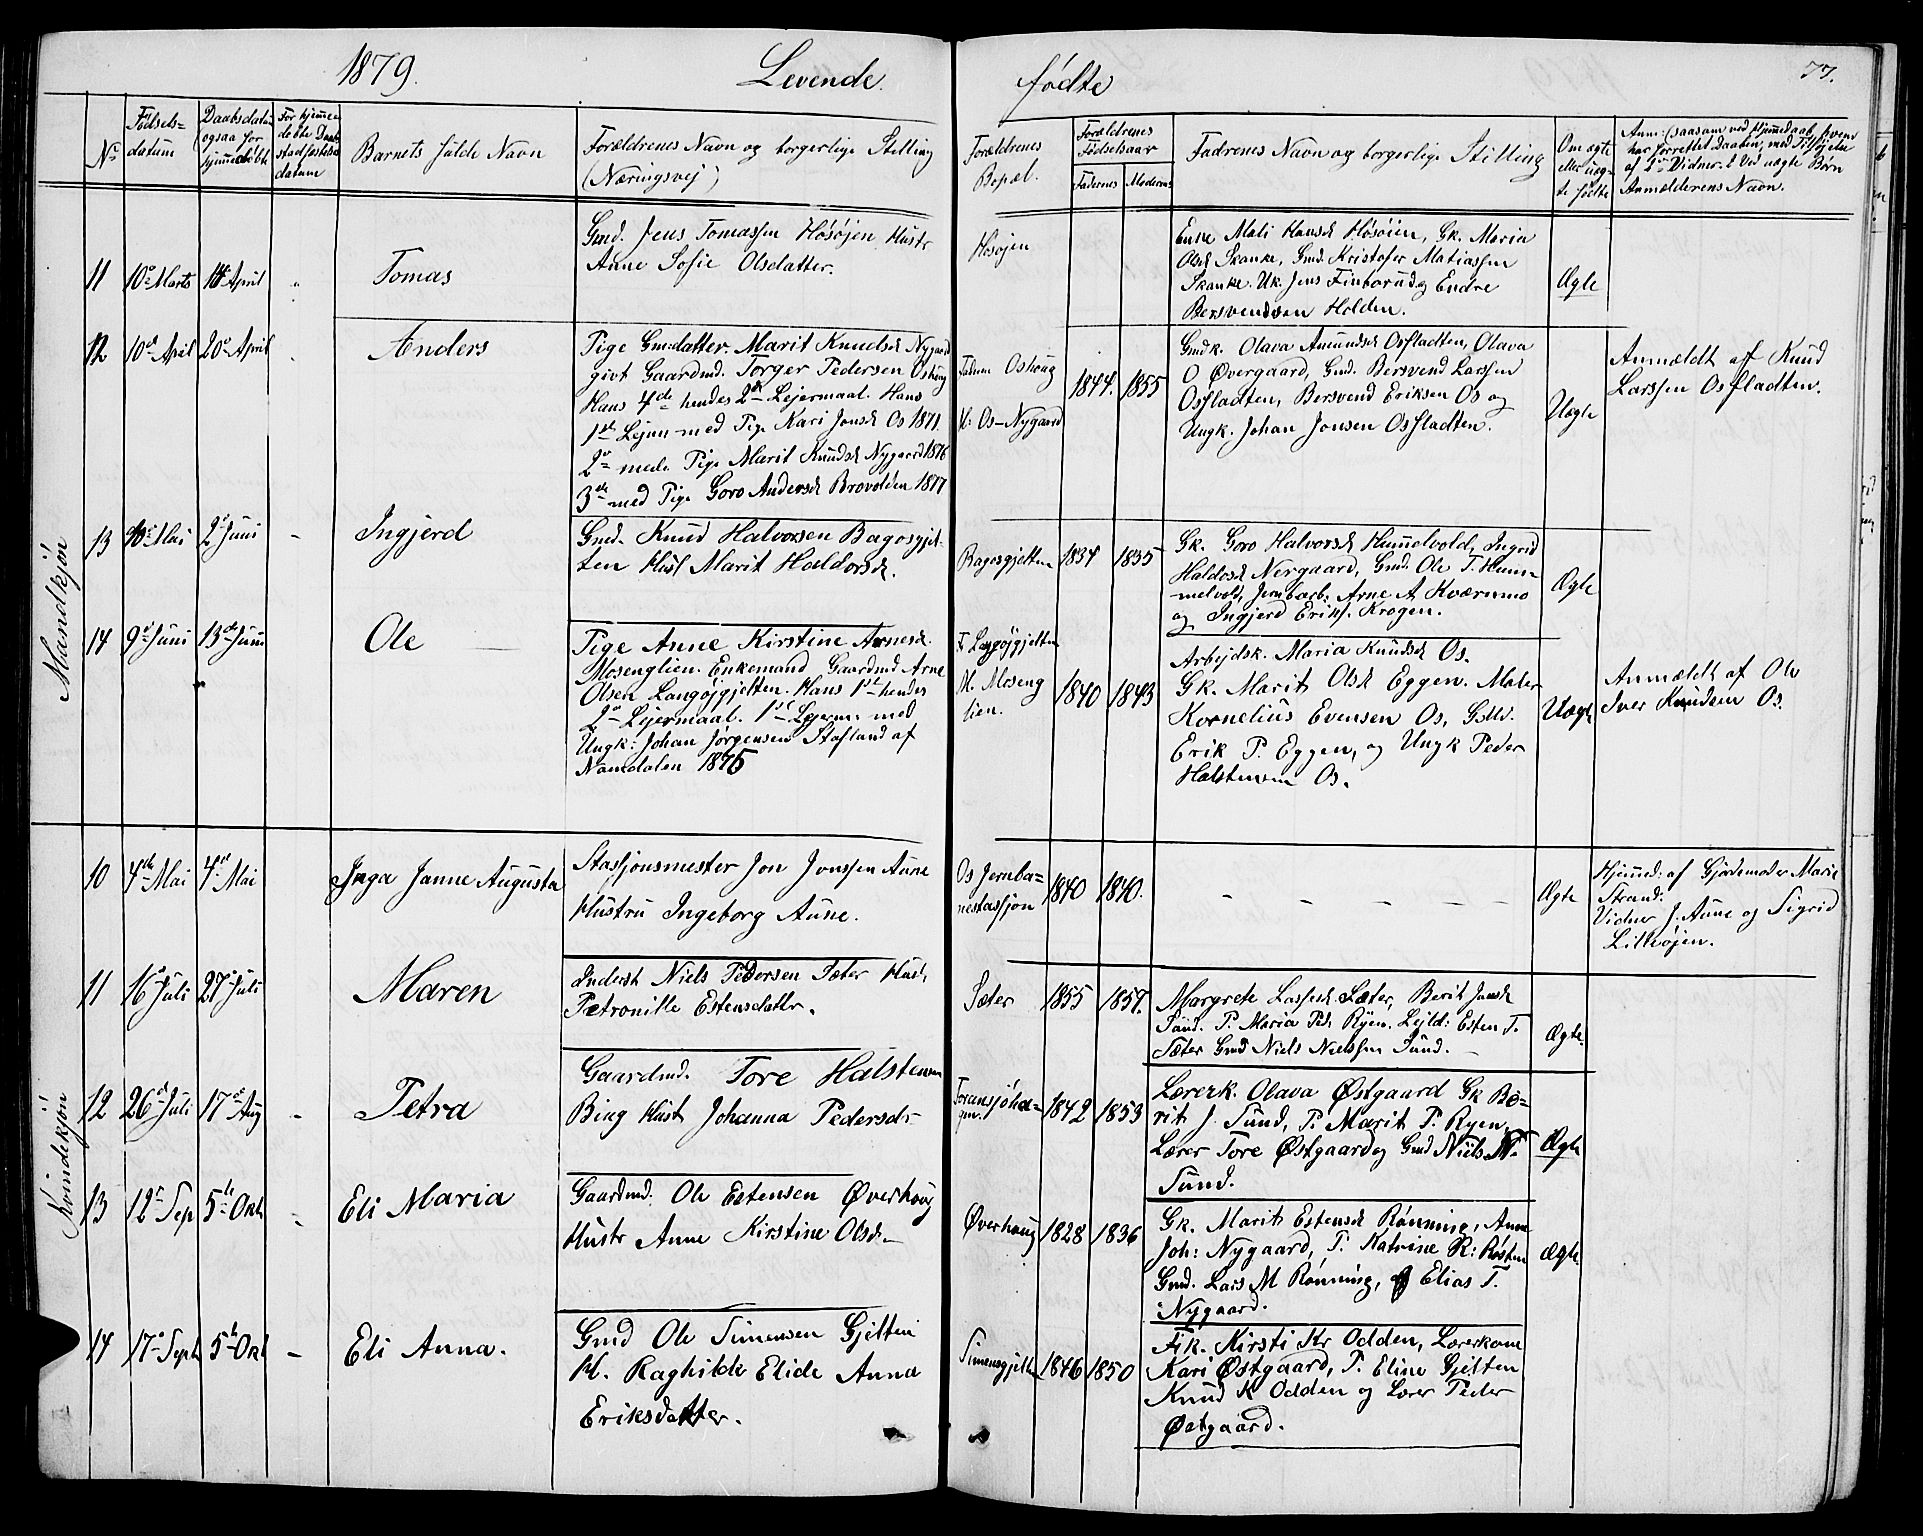 1879.
Levende
fødte
77.
No
Fødsels=
datum
Daabsdatum
(ogsaa for
hjemmedøbte
For hjemme
døbte Daab
stadfæstelse
datum
Barnets fulde Navn
Forældrenes Navn og borgerlige Stilling
(Næringsvej)
Forældrenes
Bopæl.
Forældrenes
Fødselsaar
Fadrenes
Modrenes
Fadrenes Navn og borgerlige Stilling
Om ægte
eller uæg-
te fødte
Anm: (saasom ved Hjemmedaab, hvem
har forrettet Daaben, med Tilføjelse
af 2de Vidner. t Ved uægte Børn
Anmælderens Navn.
Mandkjøn
11
10de Marts
14 April
"
Tomas
Gmd. Jens Tomassen Høsøjen Hustr
Anne Sofie Olsdatter.
Høsøjen
Enke Mali Hansd Høsøien, Gk. Maria
Olsd Skanke, Gmd. Kristofer Matiassen
Skanke. Uk. Jens Finborud og Endre
Bersvendsen Holden.
Ægte
12
10de April
20de April
Anders
Pige Gmsdatter. Marit Knudsd Nygaard
givt Gaardmd. Torger Pedersen Oshoug
Hans 4de hendes 2den Lejermaal. Hans
1ste Lejrm med Pige Kari Jonsd Os 1871.
2den med Pige Marit Knudsd Nygaard 1876
3de med Pige Goro Andersd Brovolden 1877
Faderen Oshoug
M: Os-Nygaard
1844.
1855
Gmdk. Olava Amundsd Osfladten, Olava
O Øvergaard, Gmd. Bersvend Larssen
Osfladten, Bersvend Eriksen Os og
Ungk. Johan Jonsen Osfladten.
Uægte
Anmældt aff Knud
Larssen Osfladten.
13
10de Mai
2den Juni
-
Ingjerd
Gmd. Knud Halvorsen Bagosgjel-
ten Hust Marit Haldorsd.
Bagosgjelten
1834
1835
Gk. Goro Halvorsd Hummelvold, Ingrid
Haldosd Nergaard, Gmd. Ole T. Hum-
melvold, Jernbarb: Arne A Kværnmo
og Ingjerd Eriks. Krogen.
Ægte
14
9de Juni
13de Juni
Ole
Pige Anne Kirstine Arnesd.
Mosenglien. Enkemand Gaardmd Arne
Olsen Langøjgjelten. Hans 1ste hendes
2den Lejermaal. 1ste Lejerm. med
Ungk: Johan Jørgensen Stafland af
Namdalen 1875
F. Langøjgjelten
M. Moseng
lien.
1840
1843
Arbejdsk. Maria Knudsd Os.
Gk. Marit Olsd Eggen. Maler
Kornelius Evensen Os, G.Md.
Erik P. Eggen, og Ungk Peder
Halstensen Os.
Uægte
Anmældt af Ole
Iver Knudsen Os.
Kvindekjøn
10
4de Mai
4de Mai
Inga Janne Augusta
Stassjonsmester Jon Jonssen Aune
Hustru Ingeborg Aune.
Os Jernba=
nestassjon
1840
1840.
- - - - - -
Ægte
Hjemmed: af Gjordemoder Marie
Strand.
Vidner J. Aune og Sigrid
Littløjen.
11
16de Juli
27de Juli
Maren
Inderst Niels Pedersen Sæter Hust.
Petronille Estensdattr.
Sæter
1855
1857.
Margrete Lassesd. Sæter, Berit Jonsd
Sund. P. Maria Ped. Ryen. Lejld: Esten T.
Sæter Gmd Niels Nielssen Sund.
Ægte.
12
26de Juli
17de Aug
-
Petra
Gaardmd. Tore Halstensen
Bing Hust Johanna Pedersd-
1842
1853
Lærerk. Olava Østgaard Gk Be=
rit J. Sund, P. Marit P. Ryen,
Lærer Tore Østgaard og Gmd Niels N.
Sund.
Ægte
13
12te Sep
5te Okt
-
Eli Maria
Gaardmd. Ole Estensen Øverhoug
Hustr Anne Kirstine Olsd.-
Øverhoug
1828
1836
Gk. Marit Estensd Rønning, Anne
Joh: Nygaard, P. Katrine R: Røsten
Gmd. Lars M Rønning, og Elias T.
Nygaard.
Ægte.
14
17de Sept
5te Okt
-
Eli Anna.
Gmd Ole Simensen Gjelten
H. Raghilde Elide Anna
Eriksdatter.
Simensgjelten
1846
1850
Fik. Kirsti Kr Odden, Lærerkone
Kari Østgaard, P. Eline Gjelten
Knud K Odden og Lærer Peder
Østgaard.